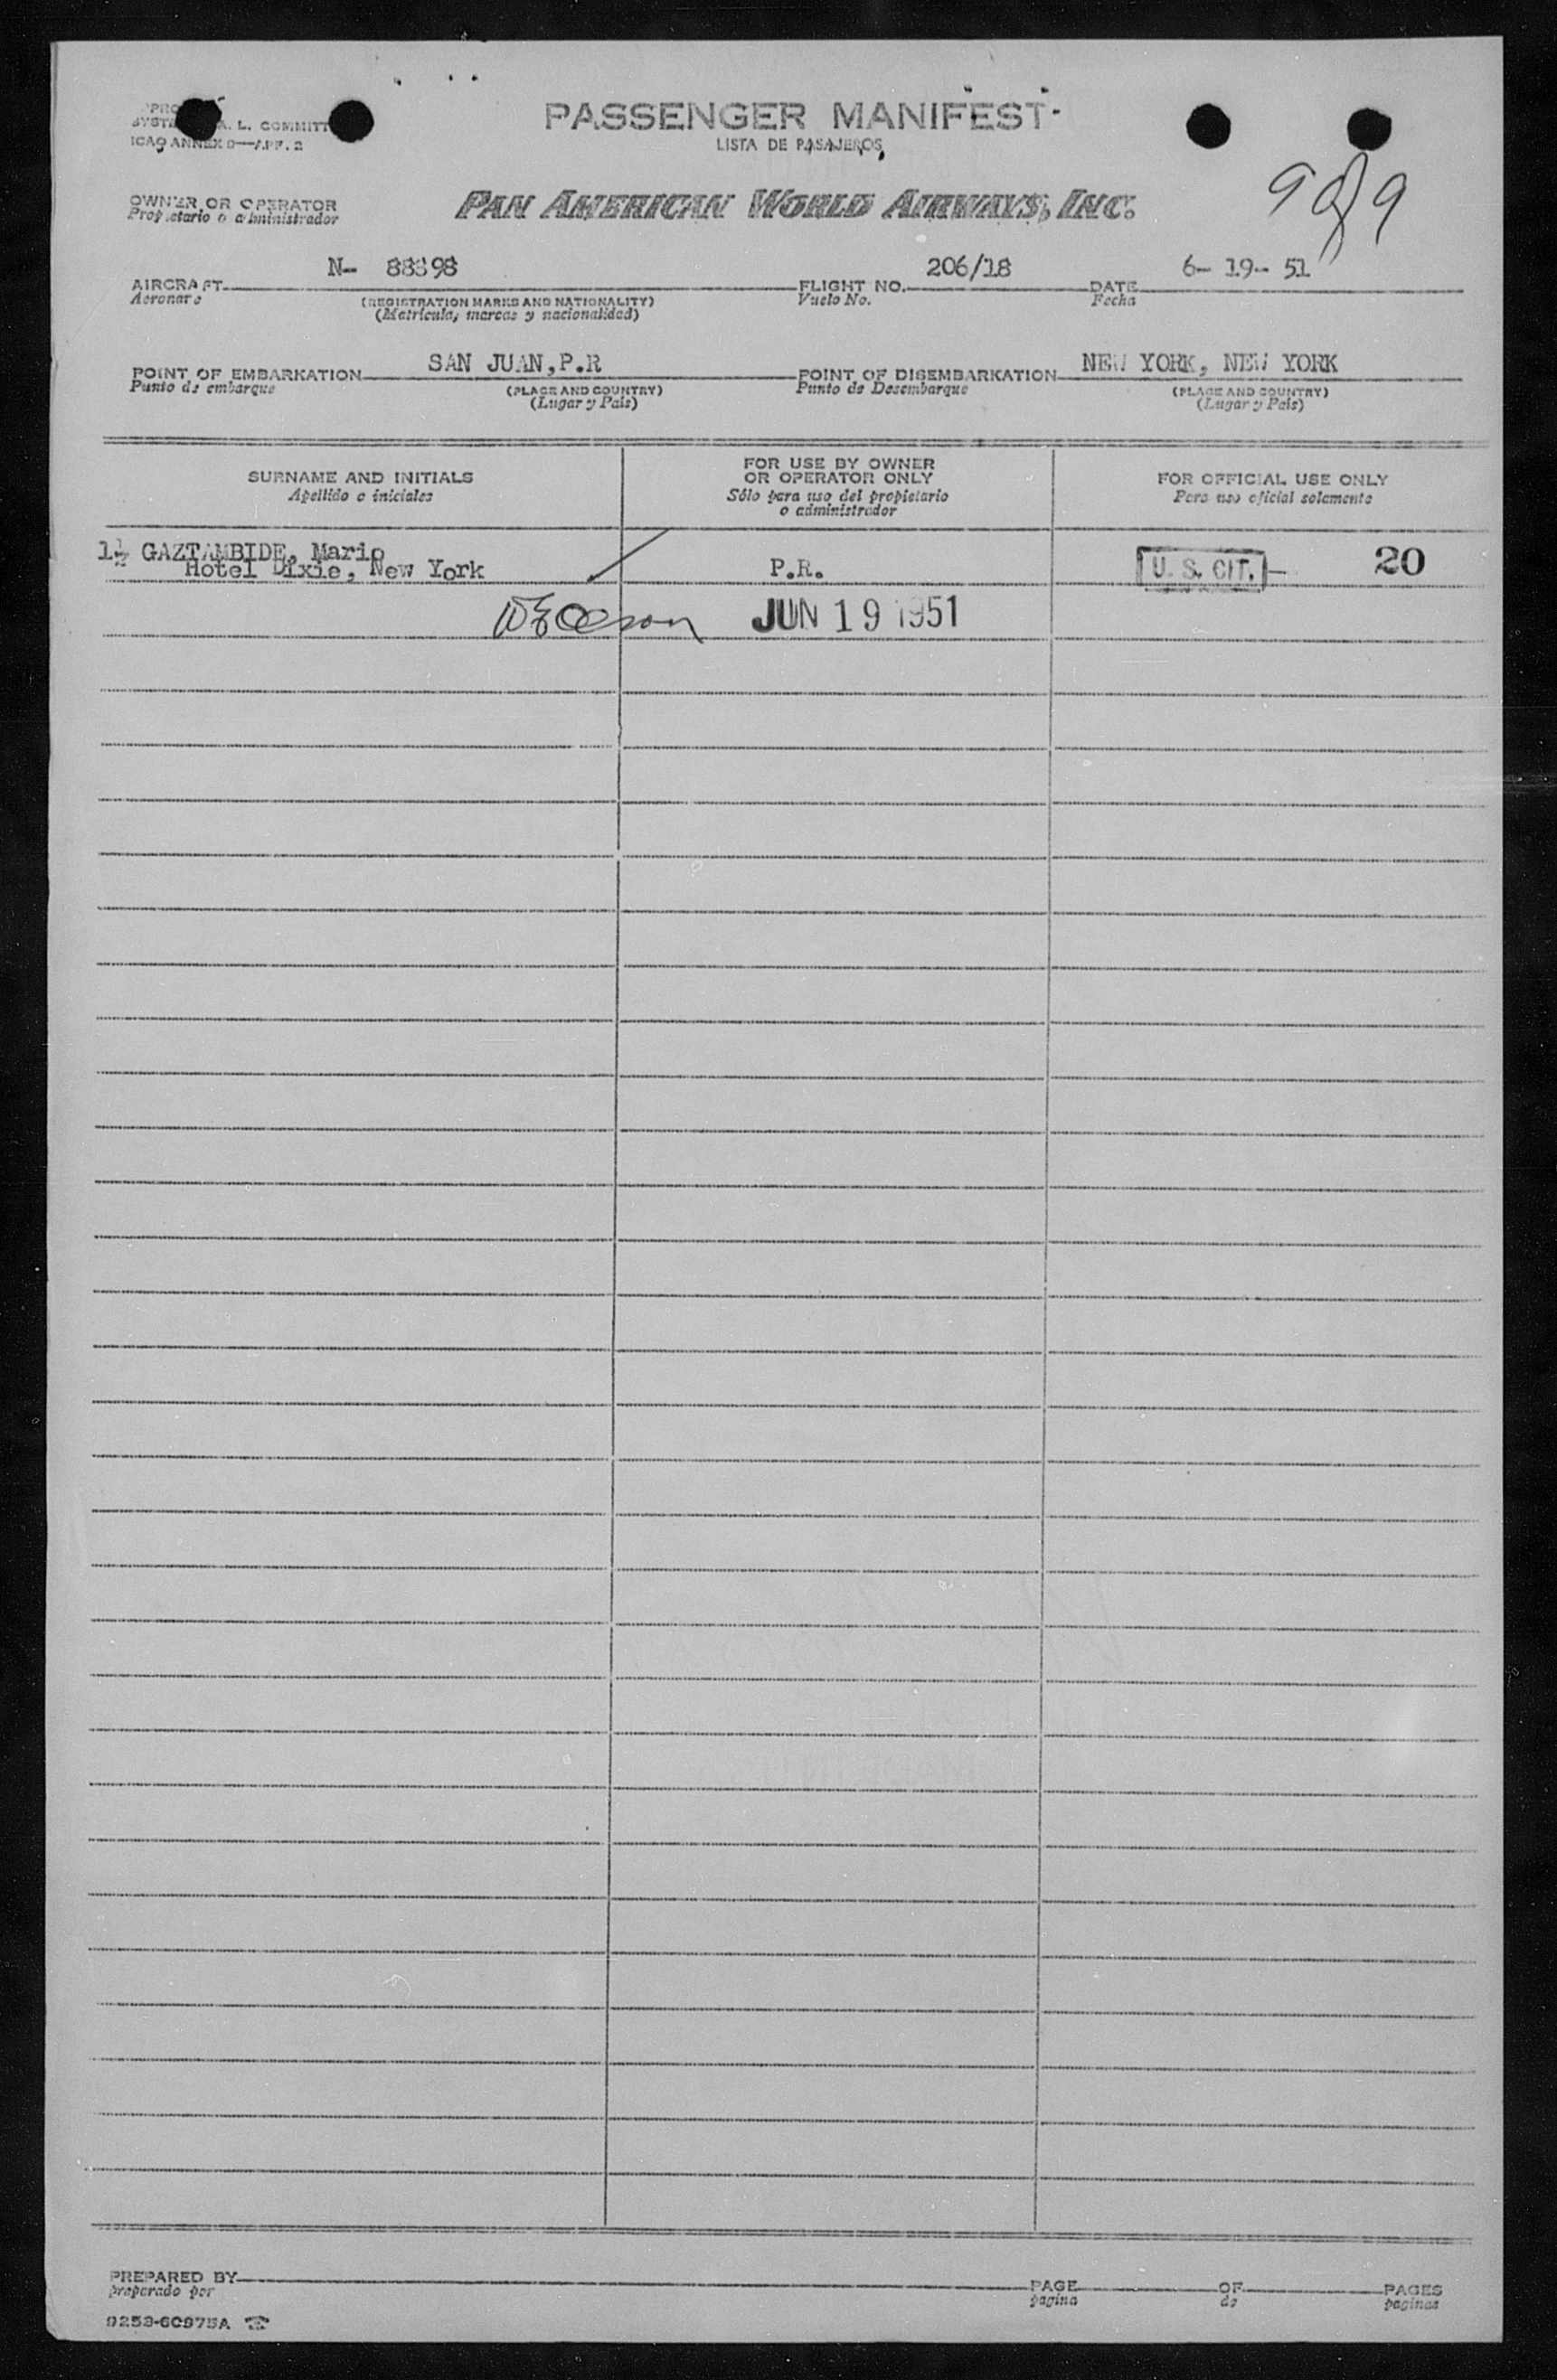 PASSENGER MANIFEST
A. L. COMMITT
LISTA DE PASAJEROS
ICAO ANNEX 9—APP. 2
OWNER OR OPERATOR
Propietario o administrador
PAN AMERICAN WORLD AIRWAYS, INC.
9 of 9
AIRCRAFT N- 88898 FLIGHT NO. 206/18 DATE 6- 19- 51
Aeronave (REGISTRATION MARKS AND NATIONALITY) Vuelo No. Fecha
(Matrícula, marcas y nacionalidad)
POINT OF EMBARKATION SAN JUAN,P.R POINT OF DISEMBARKATION NEW YORK, NEW YORK
Punto de embarque (PLACE AND COUNTRY) Punto de Desembarque (PLACE AND COUNTRY)
(Lugar y País) (Lugar y País)
SURNAME AND INITIALS
Apellido e iniciales
FOR USE BY OWNER
OR OPERATOR ONLY
Sólo para uso del propietario
o administrador
FOR OFFICIAL USE ONLY
Para uso oficial solamente
1½ GAZTAMBIDE, Mario
Hotel Dixie, New York P.R. U. S. CIT. 20
JUN 19 1951
PREPARED BY PAGE OF PAGES
preparado por pagina de paginas
9253-60975A